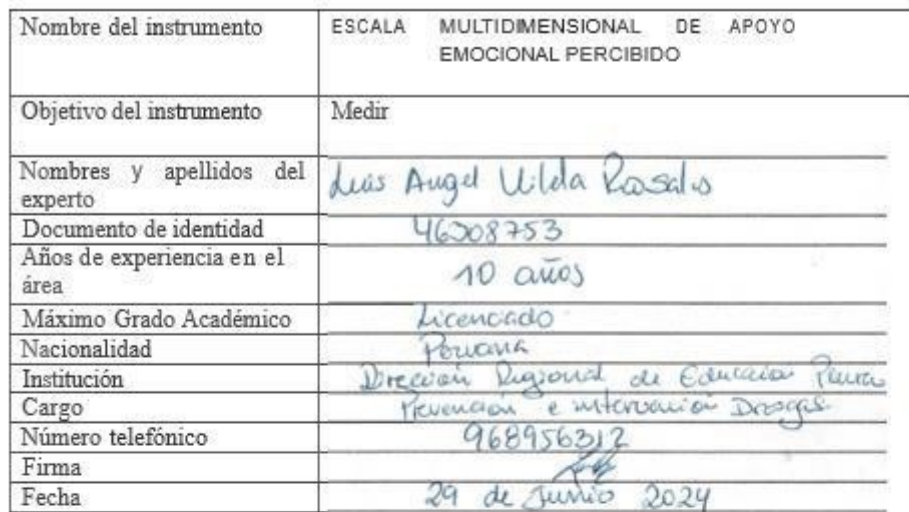 Nombre del instrumento ESCALA MULTIDIMENSIONAL DE APOYO
EMOCIONAL PERCIBIDO
Objetivo del instrumento Medir
Nombres y apellidos del
experto Luis Angel Vilela Rosales
Documento de identidad 46308753
Años de experiencia en el
área 10 años
Máximo Grado Académico Licenciado
Nacionalidad Peruana
Institución Dirección Regional de Educación Piura
Cargo Prevención e intervención Drogas
Número telefónico 968956312
Firma
Fecha 29 de Junio 2024